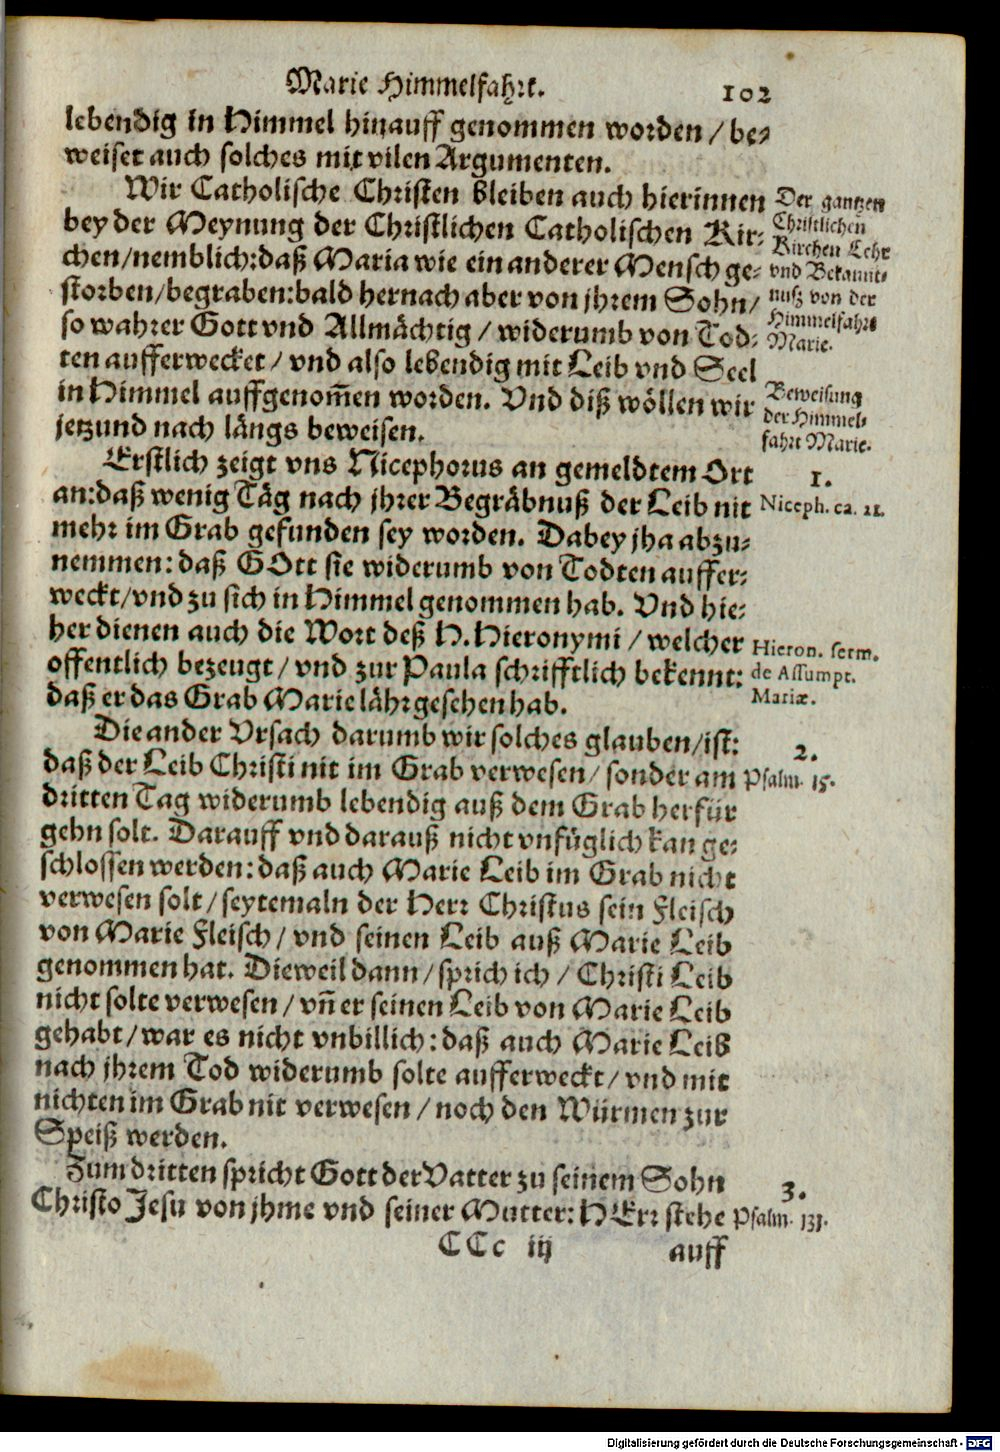 Marie Himmelfahrt. 102
lebendig in Himmel hinauff genommen worden / be-
weiset auch solches mit vilen Argumenten.
Wir Catholische Christen bleiben auch hierinnen
bey der Meynung der Christlichen Catholischen Kir-
chen/nemblich:daß Maria wie ein anderer Mensch ge-
storben/begraben:bald hernach aber von jhrem Sohn/
so wahrer Gott vnd Allmächtig / widerumb von Tod-
ten aufferwecket / vnd also lebendig mit Leib vnd Seel
in Himmel auffgenom̃en worden. Vnd diß wöllen wir
jetzund nach längs beweisen.
Der gantzen
Christlichen
Kirchen Lehr
vnd Bekannt-
nuß von der
Himmelfahrt
Marie.
Beweisung
der Himmel-
fahrt Marie.
Erstlich zeigt vns Nicephorus an gemeldtem Ort
an:daß wenig Täg nach jhrer Begräbnuß der Leib nit
mehr im Grab gefunden sey worden. Dabey jha abzu-
nemmen: daß GOtt sie widerumb von Todten auffer-
weckt/vnd zu sich in Himmel genommen hab. Vnd hie-
her dienen auch die Wort deß H. Hieronymi / welcher
offentlich bezeugt / vnd zur Paula schrifftlich bekennt:
daß er das Grab Marie lähr gesehen hab.
1.
Niceph. ca. 21.
Hieron. serm.
de Assumpt.
Mariæ.
Die ander Vrsach darumb wir solches glauben/ist:
daß der Leib Christi nit im Grab verwesen/ sonder am
dritten Tag widerumb lebendig auß dem Grab herfür
gehn solt. Darauff vnd darauß nicht vnfüglich kan ge-
schlossen werden: daß auch Marie Leib im Grab nicht
verwesen solt / seytemaln der Herr Christus sein Fleisch
von Marie Fleisch / vnd seinen Leib auß Marie Leib
genommen hat. Dieweil dann / sprich ich / Christi Leib
nicht solte verwesen / vn̄ er seinen Leib von Marie Leib
gehabt / war es nicht vnbillich: daß auch Marie Leib
nach jhrem Tod widerumb solte aufferweckt / vnd mit
nichten im Grab nit verwesen / noch den Würmen zur
Speiß werden.
2.
Psalm. 15.
Zum dritten spricht Gott der Vatter zu seinem Sohn
Christo Jesu von jhme vnd seiner Mutter: HErr stehe
3.
Psalm. 131.
CCc iij auff
Digitalisierung gefördert durch die Deutsche Forschungsgemeinschaft - DFG